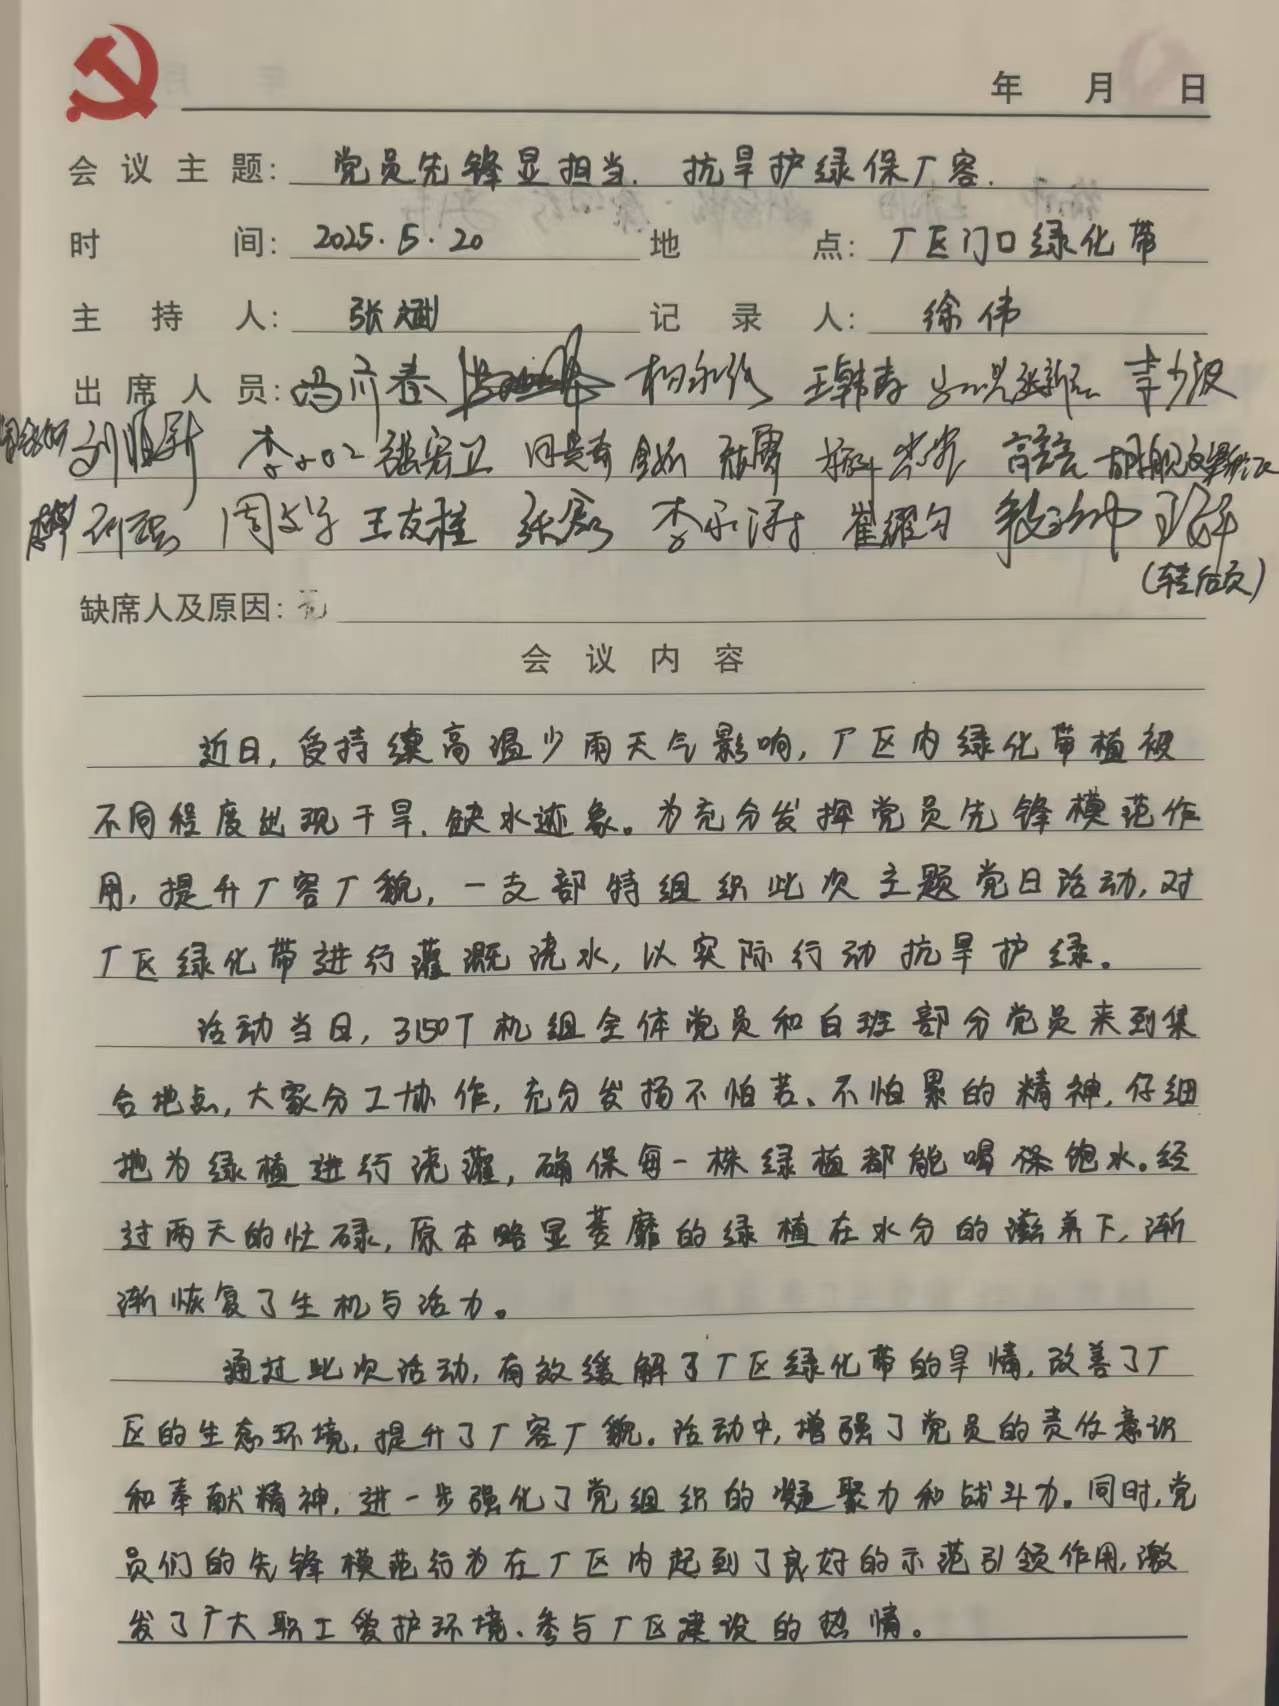 年 月 日
会议主题: 党员先锋显担当. 抗旱护绿保厂容.
时 间: 2025.5.20 地 点: 厂区门口绿化带
主 持 人: 张斌 记 录 人: 徐伟
出席人员: 冯 春 李少波
李 张宏卫
周 王友程 张 李永涛 崔耀
(转后页)
缺席人及原因: 无
会 议 内 容
近日, 受持续高温少雨天气影响, 厂区内绿化带植被
不同程度出现干旱、缺水迹象。为充分发挥党员先锋模范作
用, 提升厂容厂貌, 一支部特组织此次主题党日活动, 对
厂区绿化带进行灌溉浇水, 以实际行动抗旱护绿。
活动当日, 3150T机组全体党员和白班部分党员来到集
合地点, 大家分工协作, 充分发扬不怕苦、不怕累的精神, 仔细
地为绿植进行浇灌, 确保每一株绿植都能喝饱水。经
过两天的忙碌, 原本略显萎靡的绿植在水分的滋养下, 渐
渐恢复了生机与活力。
通过此次活动, 有效缓解了厂区绿化带的旱情, 改善了厂
区的生态环境, 提升了厂容厂貌。活动中, 增强了党员的责任意识
和奉献精神, 进一步强化了党组织的凝聚力和战斗力。同时, 党
员们的先锋模范行为在厂区内起到了良好的示范引领作用, 激
发了广大职工爱护环境、参与厂区建设的热情。